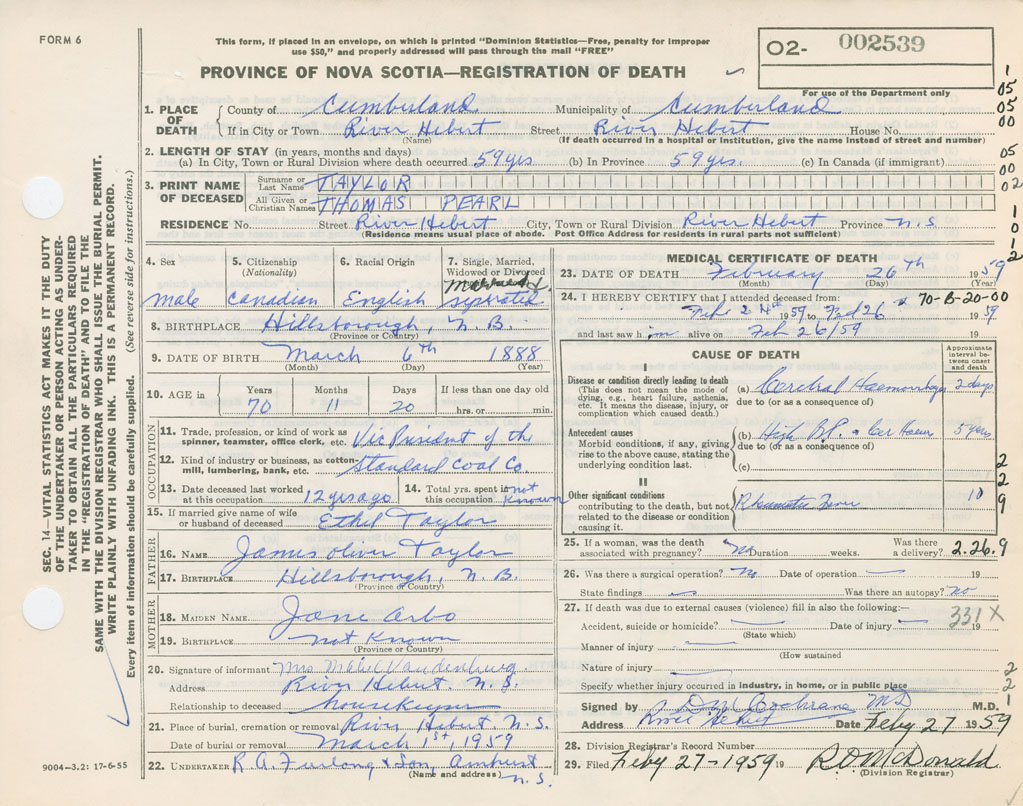 FORM 6
This form, if placed in an envelope, on which is printed "Dominion Statistics—Free, penalty for improper
use $50," and properly addressed will pass through the mail "FREE"
O2- 002539
PROVINCE OF NOVA SCOTIA—REGISTRATION OF DEATH
For use of the Department only
1. PLACE OF DEATH
County of Cumberland Municipality of Cumberland
If in City or Town River Hebert Street River Hebert House No.
(Name) (If death occurred in a hospital or institution, give the name instead of street and number)
2. LENGTH OF STAY (in years, months and days)
(a) In City, Town or Rural Division where death occurred 59 yrs (b) In Province 59 yrs. (c) In Canada (if immigrant)
3. PRINT NAME OF DECEASED
Surname or Last Name TAYLOR
All Given or Christian Names THOMAS PEARL
RESIDENCE No. Street River Hebert City, Town or Rural Division River Hebert Province N.S.
(Residence means usual place of abode. Post Office Address for residents in rural parts not sufficient)
1
05
05
00
05
00
02
1
1
0
1
2
SEC. 14—VITAL STATISTICS ACT MAKES IT THE DUTY
OF THE UNDERTAKER OR PERSON ACTING AS UNDER-
TAKER TO OBTAIN ALL THE PARTICULARS REQUIRED
IN THE "REGISTRATION OF DEATH" AND TO FILE THE
SAME WITH THE DIVISION REGISTRAR WHO SHALL ISSUE THE BURIAL PERMIT.
WRITE PLAINLY WITH UNFADING INK. THIS IS A PERMANENT RECORD.
Every item of information should be carefully supplied. (See reverse side for instructions.)
4. Sex
male
5. Citizenship
(Nationality)
Canadian
6. Racial Origin
English
7. Single, Married,
Widowed or Divorced
separated
8. BIRTHPLACE Hillsborough, N.B.
(Province or Country)
9. DATE OF BIRTH March 6th 1888
(Month) (Day) (Year)
10. AGE in
Years Months Days If less than one day old
70 11 20 hrs. or min.
OCCUPATION
11. Trade, profession, or kind of work as
spinner, teamster, office clerk, etc. Vic President of the
12. Kind of industry or business, as cotton-
mill, lumbering, bank, etc. Standard Coal Co
13. Date deceased last worked
at this occupation 12 yrs ago
14. Total yrs. spent in
this occupation not known
15. If married give name of wife
or husband of deceased Ethel Taylor
FATHER
16. NAME James Oliver Taylor
17. BIRTHPLACE Hillsborough, N.B.
(Province or Country)
MOTHER
18. MAIDEN NAME Jane Arbo
19. BIRTHPLACE not Known
(Province or Country)
20. Signature of informant Mrs Mabel Vandenburg
Address River Hebert. N.S.
Relationship to deceased housekeeper
21. Place of burial, cremation or removal River Hebert N.S.
Date of burial or removal March 1st, 1959
22. UNDERTAKER R.A. Furlong & Son, Amherst
(Name and address) N.S.
9004-3.2: 17-6-55
MEDICAL CERTIFICATE OF DEATH
23. DATE OF DEATH February 26th 1959
(Month) (Day) (Year)
24. I HEREBY CERTIFY that I attended deceased from: 70-B-20-00
Feb 24th 1959 to Feb 26th 1959
and last saw him alive on Feb 26/59 19
CAUSE OF DEATH
Approximate
interval be-
tween onset
and death
I
Disease or condition directly leading to death
(This does not mean the mode of
dying, e.g., heart failure, asthenia,
etc. It means the disease, injury, or
complication which caused death.)
(a) Cerebral Haemorrhage 2 days
due to (or as a consequence of)
Antecedent causes
Morbid conditions, if any, giving
rise to the above cause, stating the
underlying condition last.
(b) High B.P. 5 years
due to (or as a consequence of)
(c)
II
Other significant conditions
contributing to the death, but not
related to the disease or condition
causing it.
Rheumatic Fever 10
2
2
9
25. If a woman, was the death
associated with pregnancy? Duration weeks. Was there
a delivery? 2.26.9
26. Was there a surgical operation? No Date of operation 19
State findings Was there an autopsy? No
27. If death was due to external causes (violence) fill in also the following:—
331X
Accident, suicide or homicide? Date of injury 19
(State which)
Manner of injury
(How sustained
Nature of injury
Specify whether injury occurred in industry, in home, or in public place
2
2
1
Signed by D M Cochrane MD M.D.
Address River Hebert Date Feby 27 1959
28. Division Registrar's Record Number
29. Filed Feby 27-1959 19 R D McDonald
(Division Registrar)